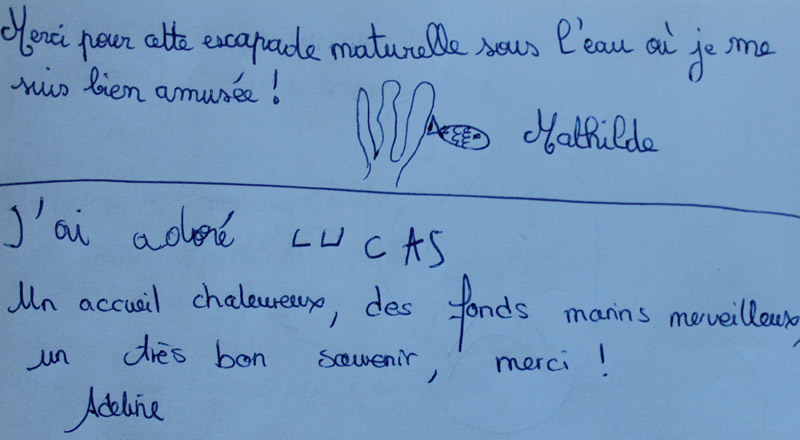 Merci pour cette escapade maturelle sous l'eau où je me
suis bien amusée !
Mathilde
J'ai adoré LUCAS
Un accueil chaleureux, des fonds marins merveilleux,
un très bon souvenir, merci !
Adeline